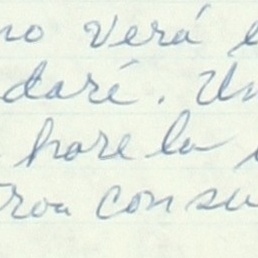 no verá
daré. Un
hare la
con su